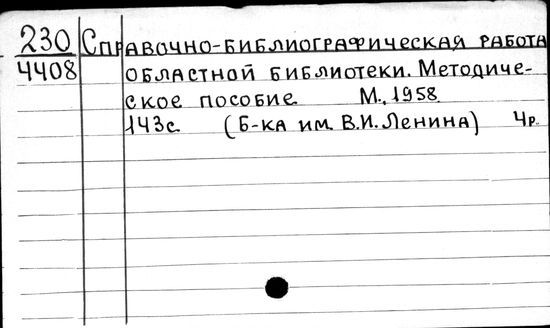 230 Справочно-библиографическая работа
4408 областной библиотеки. Методиче-
ское пособие М., 1958
143с. (Б-ка им. В.И. Ленина) 4р.